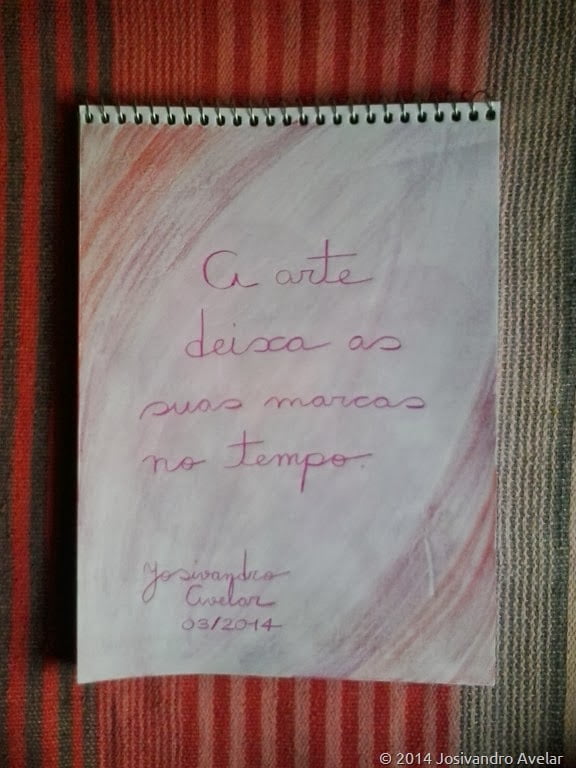 A arte
deixa as
suas marcas
no tempo.
Josivandro
Avelar
03/2014
© 2014 Josivandro Avelar